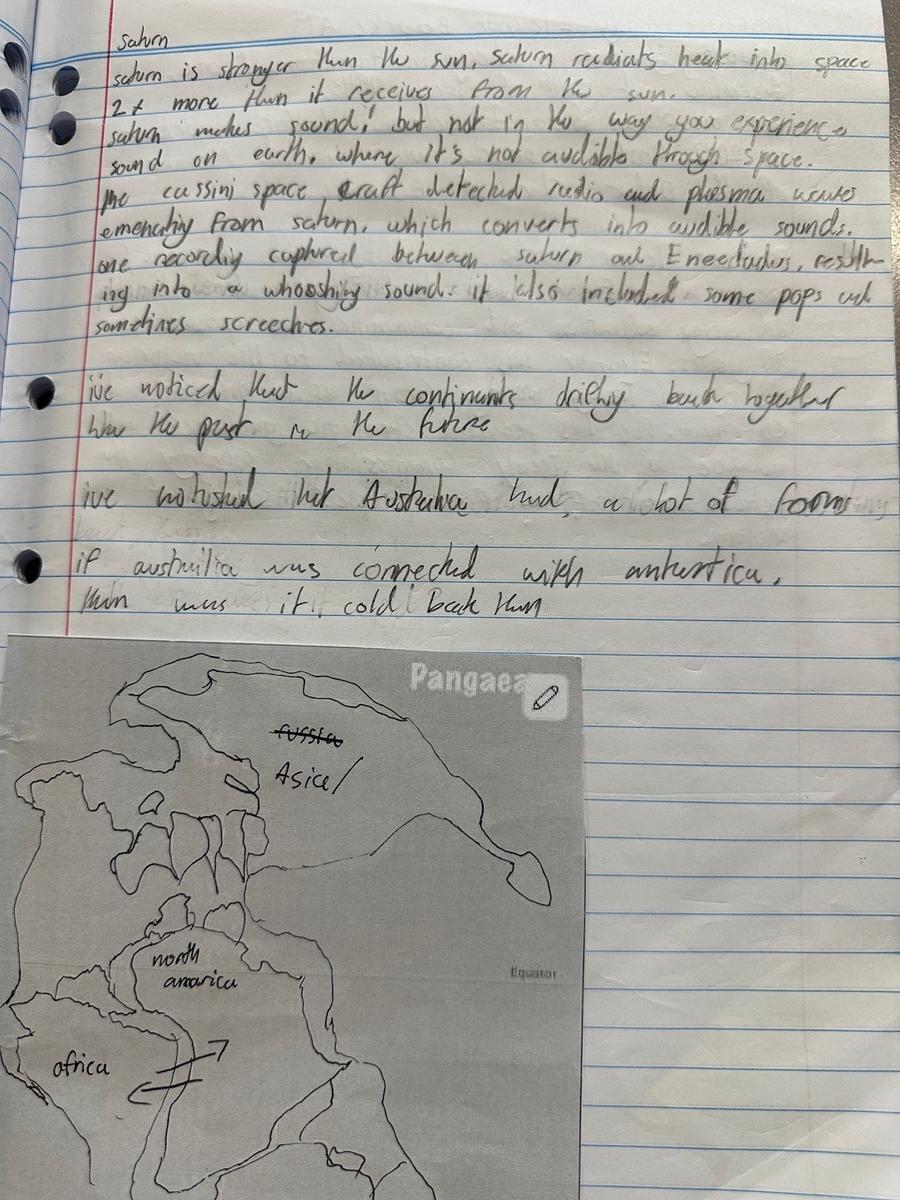 saturn
saturn is stronger then the sun, saturn radiats heat into space
2x more then it receives from the sun.
saturn makes sound! but not in the way you experience
sound on earth, where it's not audible through space.
the cassini space craft detected radio and plasma waves
emenating from saturn, which converts into audible sounds.
one recording captured between saturn and Eneeladus, result-
ing into a whooshing sound. it also included some pops and
somtimes screeches.
iv'e noticed that the continants drifting back together
the past in the future
ive notished that Australia had, a lot of forms
if austrilia was connected with antartica.
then was it cold back then
Pangaea
russia
Asice/
north
amarica
Equator
africa